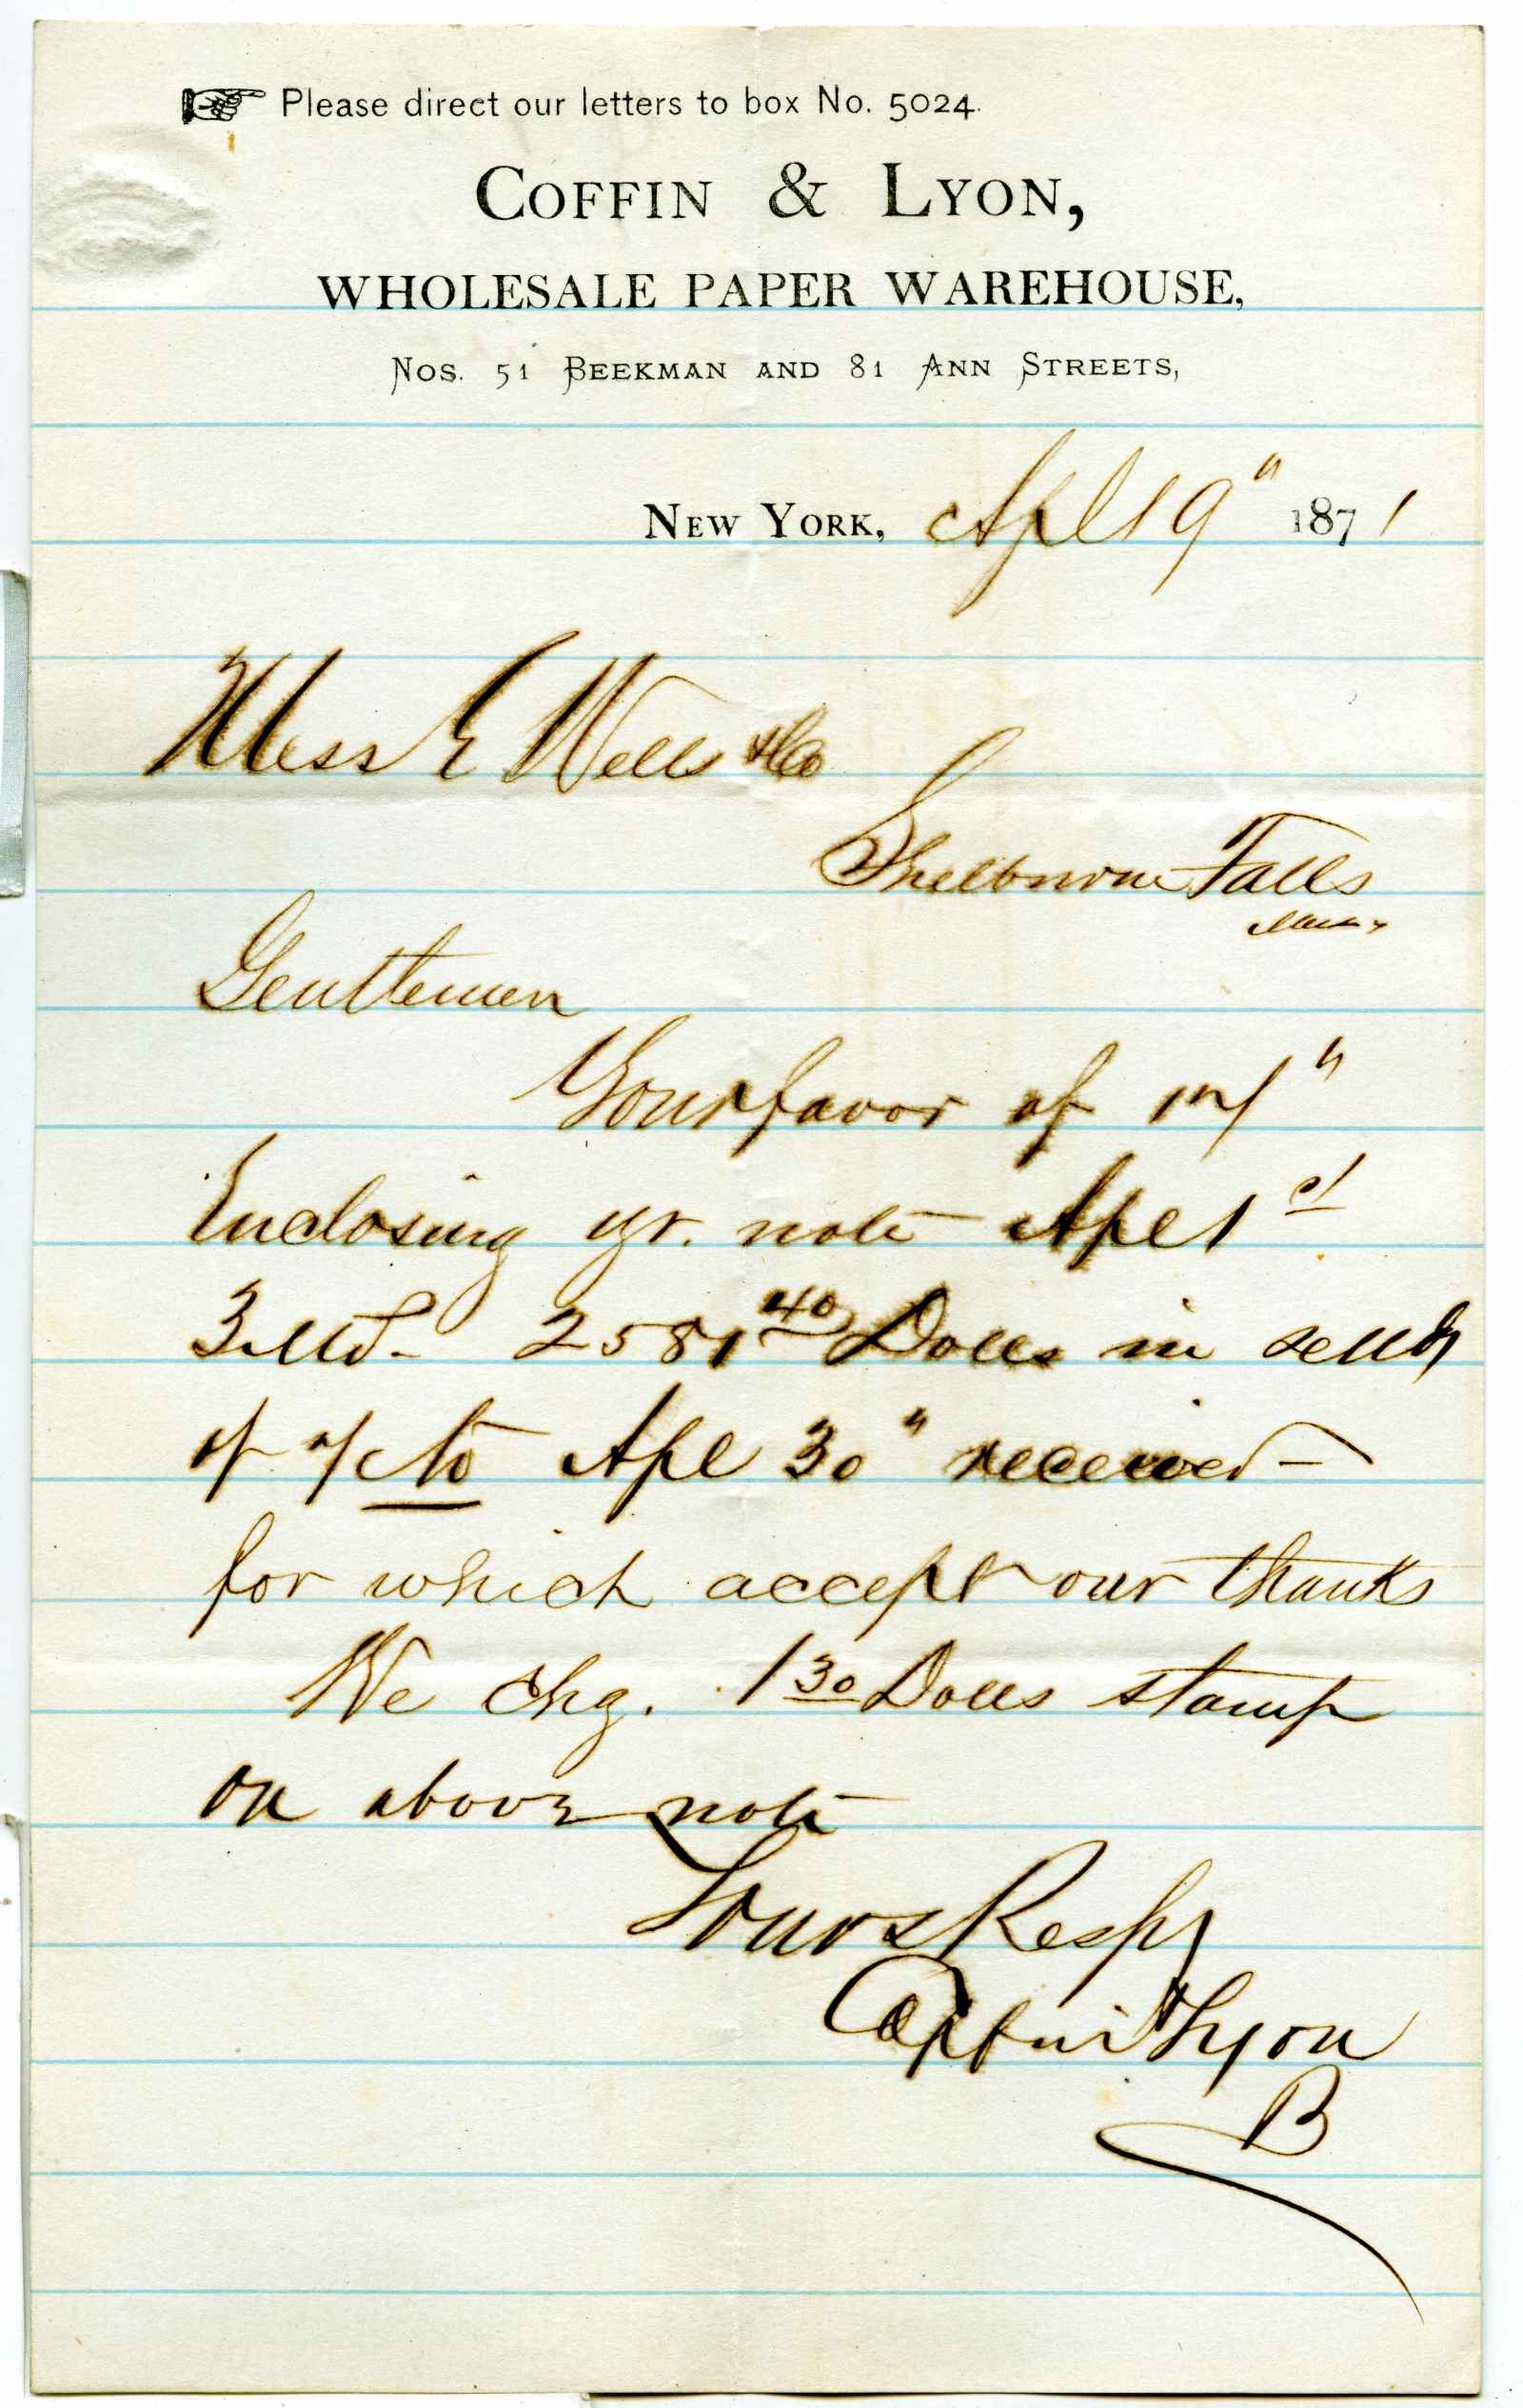 Please direct our letters to box No. 5024.
COFFIN & LYON,
WHOLESALE PAPER WAREHOUSE,
NOS. 51 BEEKMAN AND 81 ANN STREETS,
NEW YORK, Apl 19" 1871
Mess E Wells & Co
Shelburne Falls
Mass
Gentlemen
Your favor of "
Enclosing yr. note Apl 1st
3 Md. 2581 40 Dolls in settlt
of a/c to Apl 30" received
for which accept our thanks
We chg. 1 30 Dolls stamp
on above note
Yours Respy
Coffin & Lyon
B